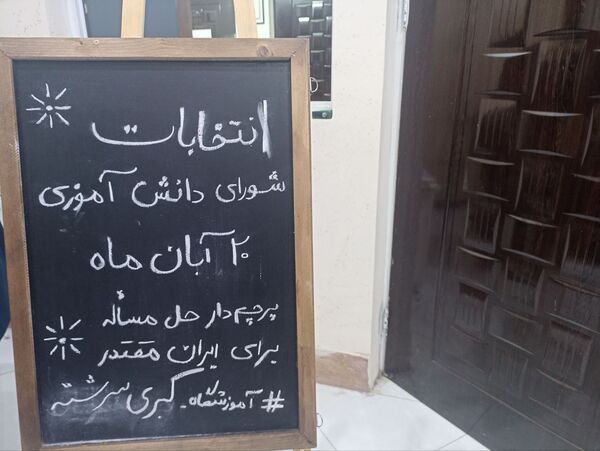 انتخابات
شورای دانش آموزی
۲۰ آبان ماه
پرچم‌دار حل مسأله
برای ایران مقتدر
# آموزشگاه_کبری سرشته